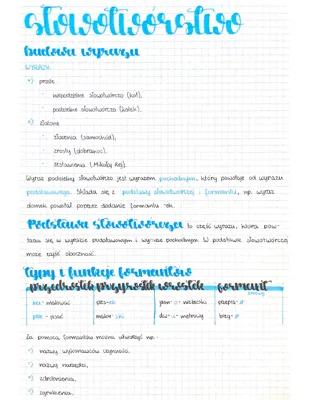 słowotwórstwo
budowa wyrazu
WYRAZY:
proste
niepodzielne słowotwórczo (kot),
podzielne słowotwórczo (kotek).
złożone
złożenia (samochód),
zrosty (dobranoc),
zestawienia (Mikołaj Rej).
Wyraz podzielny słowotwórczo jest wyrazem pochodnym, który powstaje od wyrazu
podstawowego. Składa się z podstawy słowotwórczej i formantu, np. wyraz
domek powstał poprzez dodanie formantu -ek.
Podstawa słowotwórcza to część wyrazu, która pow-
tarza się w wyrazie podstawowym i wyrazie pochodnym. W podstawie słowotwórczej
może zajść oboczność.
typy i funkcje formantów
przedrostek przyrostek wrostek formant
pies-ek
prze-pisać
Za pomocą formantów można utworzyć np.:
nazwy wykonawców czynności,
nazwy narzędzi,
zdrobnienia,
zgrubienia,